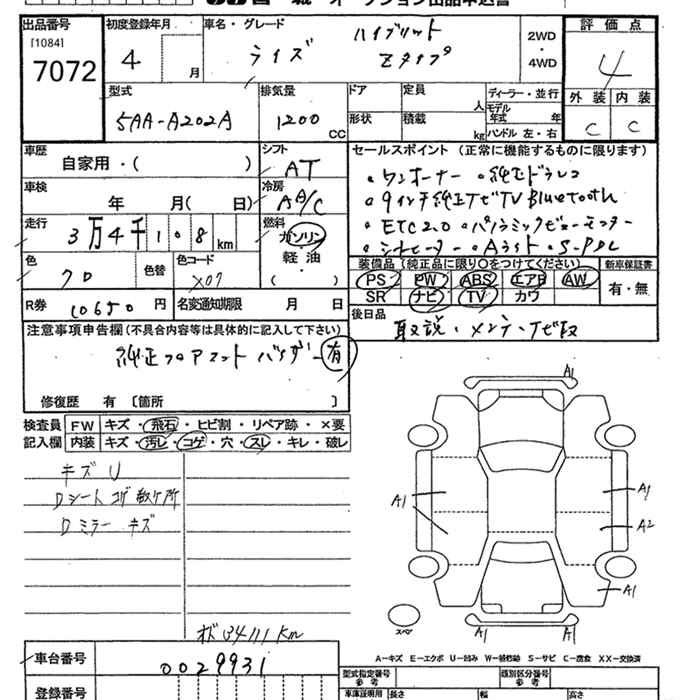 出品番号
[1084]
7072
初度登録年月
4 月
車名・グレード
ライズ
ハイブリット
Zタイプ
2WD
・
4WD
評価点
4
外装 内装
C C
型式
5AA-A202A
排気量
1200 CC
ドア
形状
定員 人
積載 kg
ディーラー・並行
モデル年式 年式
ハンドル 左・右
車歴
自家用・( )
シフト
AT
車検
年 月( 日)
冷房
AA/C
走行
3万4千108 km
燃料
ガソリン
軽油
( )
色
クロ
色替
色コード
X07
R券
10650 円
名変通知期限 月 日
セールスポイント (正常に機能するものに限ります)
・ワンオーナー ・純正ドラレコ
・9インチ純正ナビTV Bluetooth
・ETC2.0 ・パノラミックビューモニター
・シートヒーター ・Aライト ・S-PDL
装備品(純正品に限り○をつけてください)
PS PW ABS エアB AW
SR ナビ TV カワ
新車保証書
有・無
後日品
取説・メンテ・ナビ取
注意事項申告欄(不具合内容等は具体的に記入して下さい)
純正フロアマット バイザー 有
修復歴 有 〔箇所 〕
検査員
記入欄
FW キズ・飛石・ヒビ割・リペア跡・×要
内装 キズ・汚レ・コゲ・穴・スレ・キレ・破レ
キズ U
Dシート コゲ 数ケ所
Dミラー キズ
オド 34111 km
A1
A1
A1
A2
A1
スペア
A1
A1
A-キズ E-エクボ U-凹み W-補修跡 S-サビ C-腐食 XX-交換済
車台番号
0029931
登録番号
型式指定番号
参考
類別区分番号
参考
車庫証明用
長さ
幅
高さ